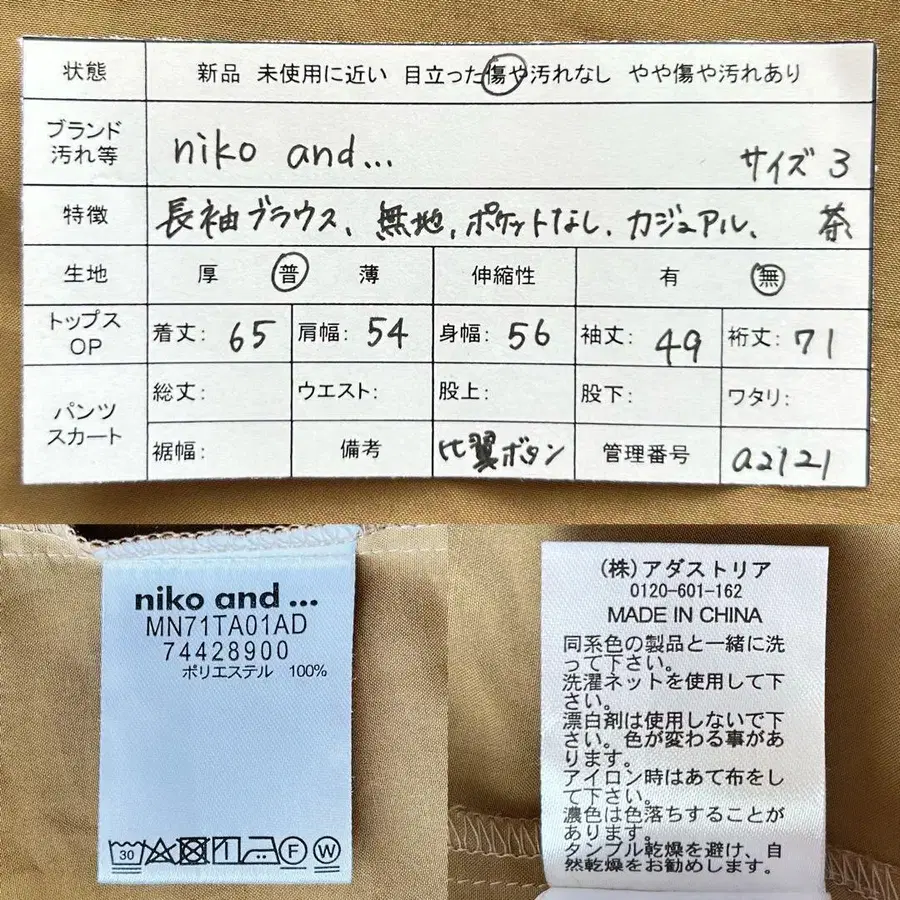 状態 新品 未使用に近い 目立った傷や汚れなし やや傷や汚れあり
ブランド
汚れ等 niko and... サイズ3
特徴 長袖ブラウス、無地、ポケットなし、カジュアル、 茶
生地 厚 普 薄 伸縮性 有 無
トップス
OP 着丈: 65 肩幅: 54 身幅: 56 袖丈: 49 裄丈: 71
パンツ
スカート 総丈: ウエスト: 股上: 股下: ワタリ:
裾幅: 備考 比翼ボタン 管理番号 a2121
niko and ...
MN71TA01AD
74428900
ポリエステル 100%
30 F W
(株)アダストリア
0120-601-162
MADE IN CHINA
同系色の製品と一緒に洗
って下さい。
洗濯ネットを使用して下
さい。
漂白剤は使用しないで下
さい。色が変わる事があ
ります。
アイロン時はあて布をし
て下さい。
濃色は色落ちすることが
あります。
タンブル乾燥を避け、自
然乾燥をお勧めします。